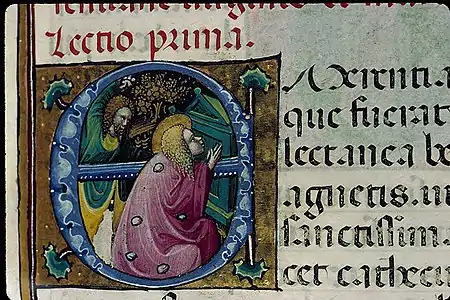 Lectio prima.
EMerentia
que fuerat
lectanea be
agnetis. ui
sanctissim
cet cathecu